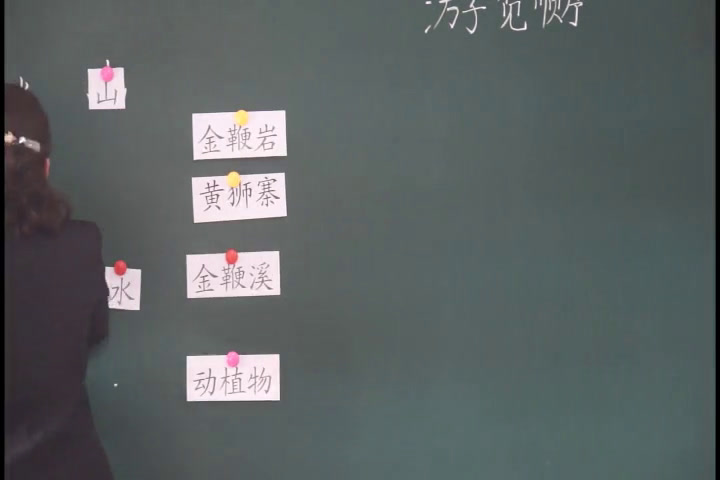 游 览 顺序
山
金鞭岩
黄狮寨
水
金鞭溪
动植物